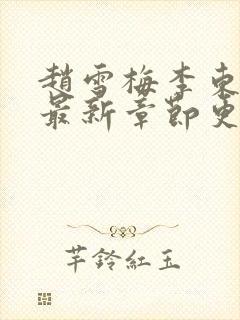 趙雪梅李東
最新章節更
芊鈴紅玉